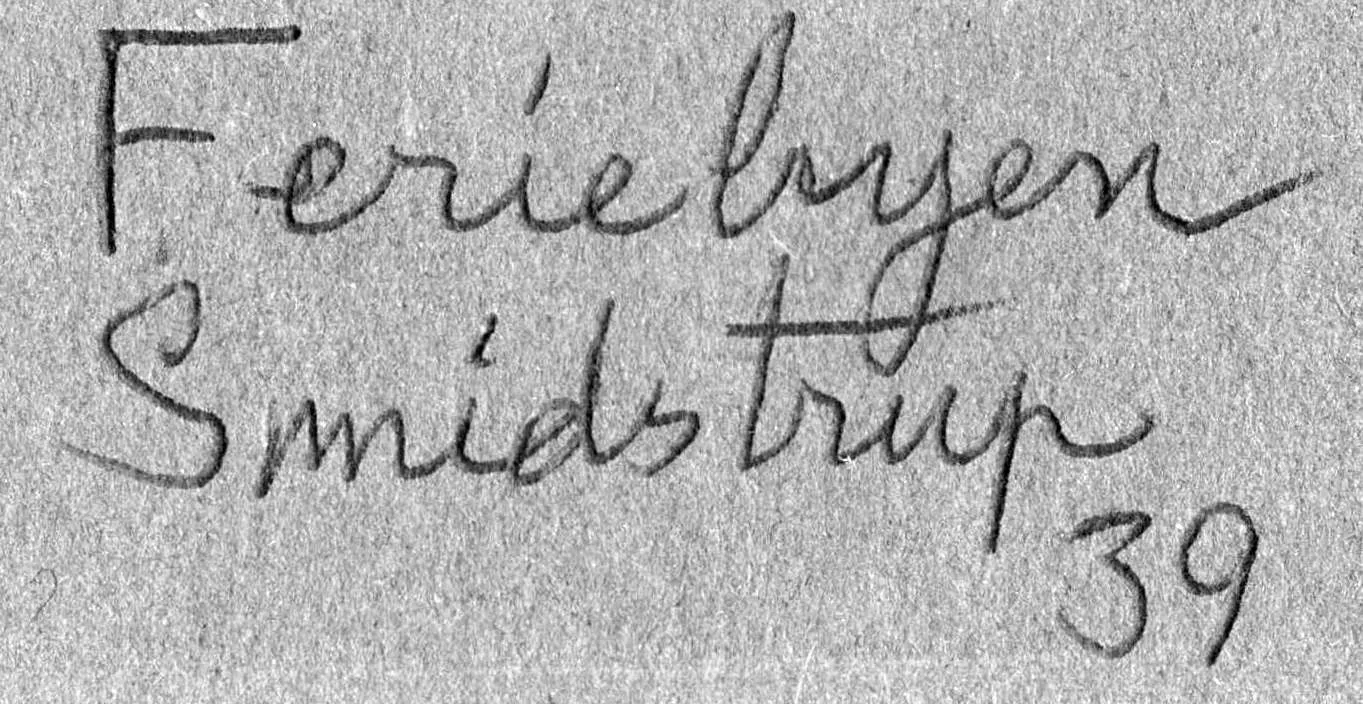 Feriebyen
Smidstrup
39